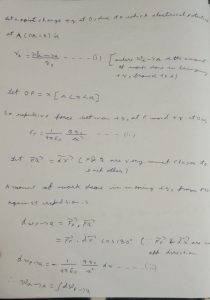 Let a point charge +q at O, due to which electrical potential
at A (OA = r) is
V_A = W∞→A / q₀ ...... (i) [where W∞→A is the amount
of work done in bringing
+q₀ from ∞ to A]
Let OP = x [A < x < ∞]
So repulsive force between +q₀ at P and +q at O is
F = 1/4πε₀ qq₀/x² ---- (ii)
Let PQ = dx (P & Q are very much closer to
each other)
Amount of work done in moving +q₀ from P to Q
against repulsion is
dW = F . PQ
= F . dx cos 180° (∵ F & dx are in
opp direction)
dW = - 1/4πε₀ qq₀/x² dx ----- (iii)
∴ W∞→A = ∫dW